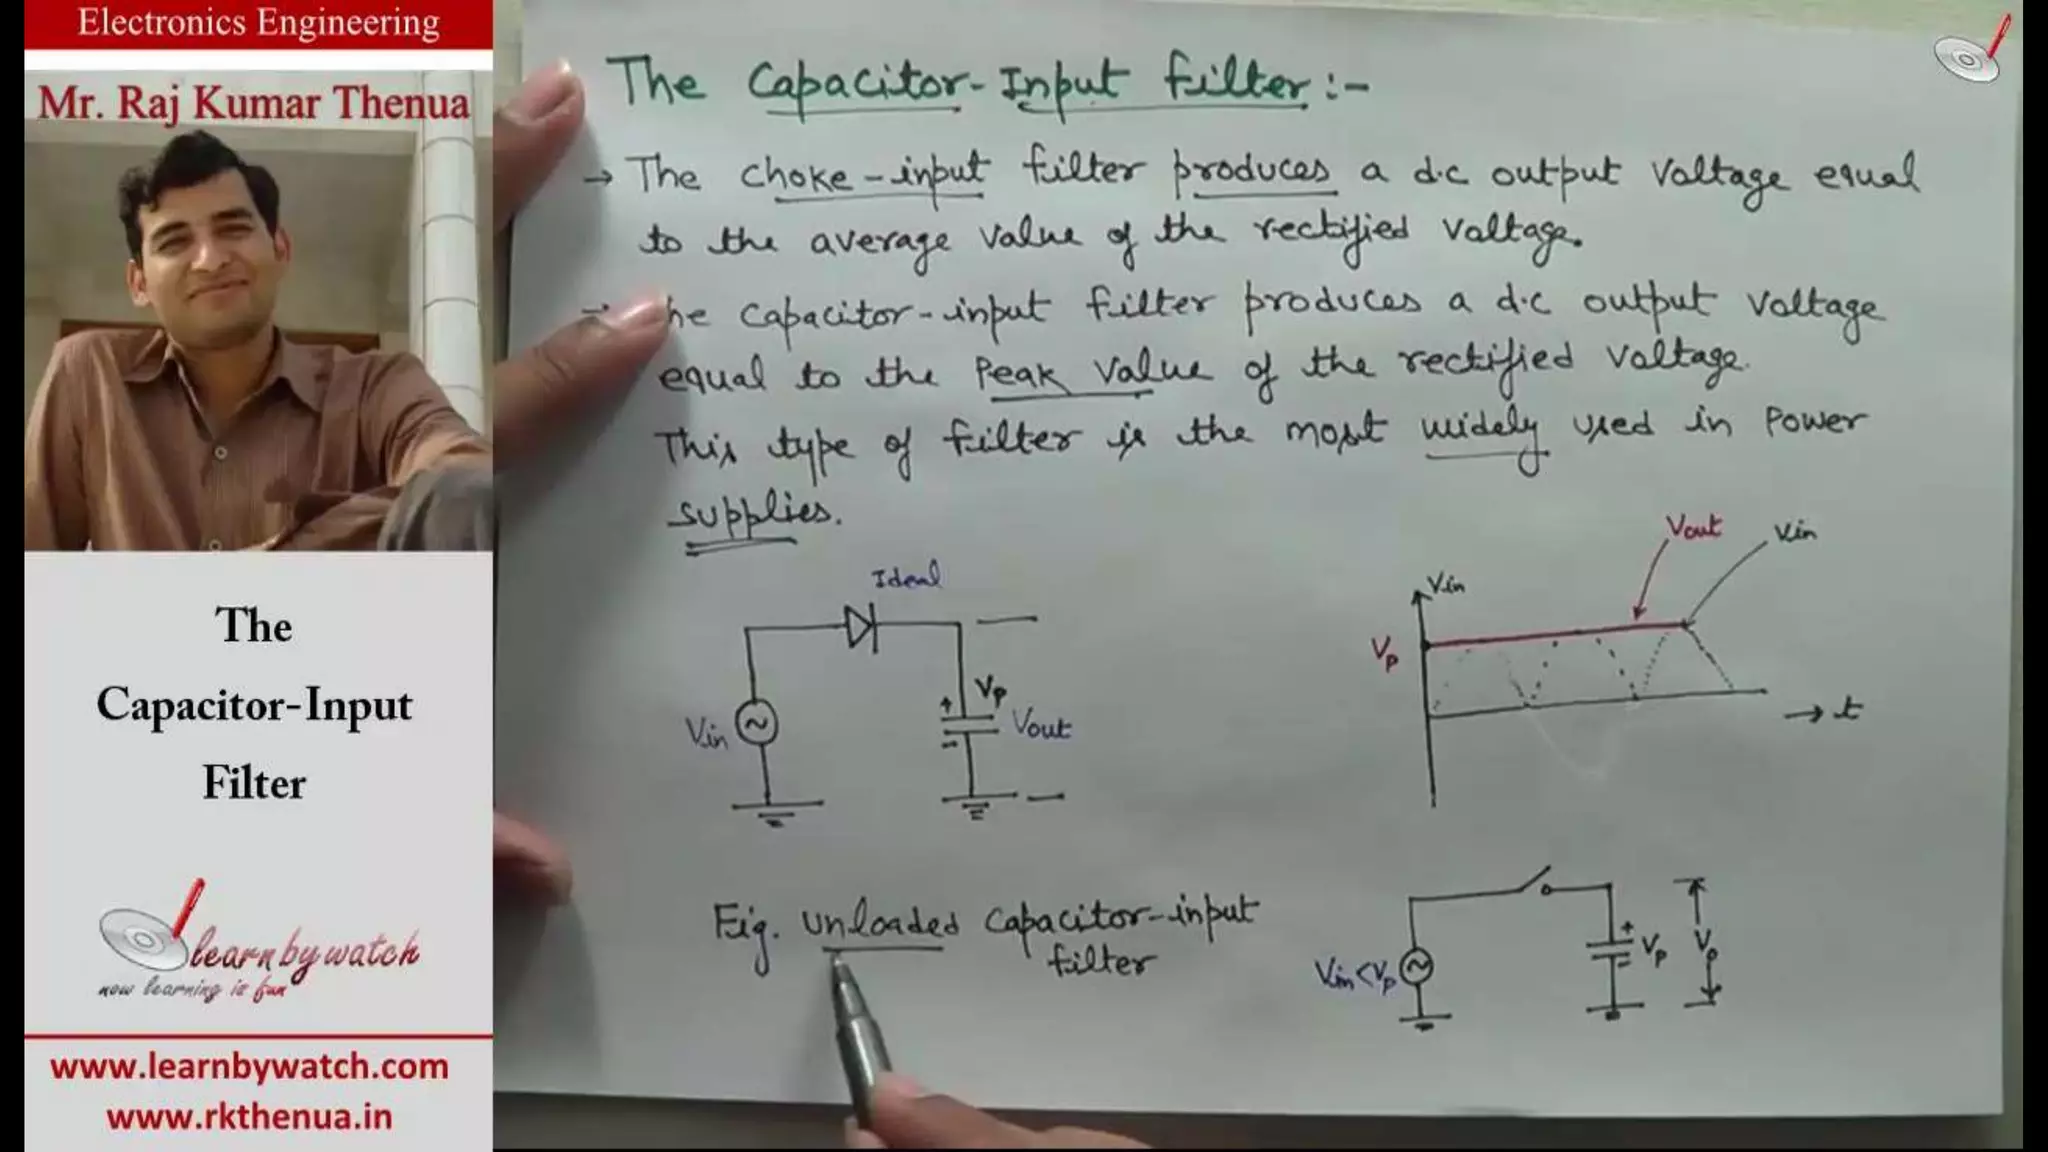 Electronics Engineering
Mr. Raj Kumar Thenua
The
Capacitor-Input
Filter
learnbywatch
now learning is fun
www.learnbywatch.com
www.rkthenua.in
The Capacitor-Input Filter :-
→ The choke-input filter produces a d.c output voltage equal
to the average value of the rectified voltage.
→ he capacitor-input filter produces a d.c output voltage
equal to the Peak value of the rectified voltage.
This type of filter is the most widely used in power
supplies.
Ideal
Vin
+ Vp
- Vout
Vout
Vin
Vin
Vp
→ t
Fig. unloaded capacitor-input
filter
Vin < Vp
+
- Vp
Vp